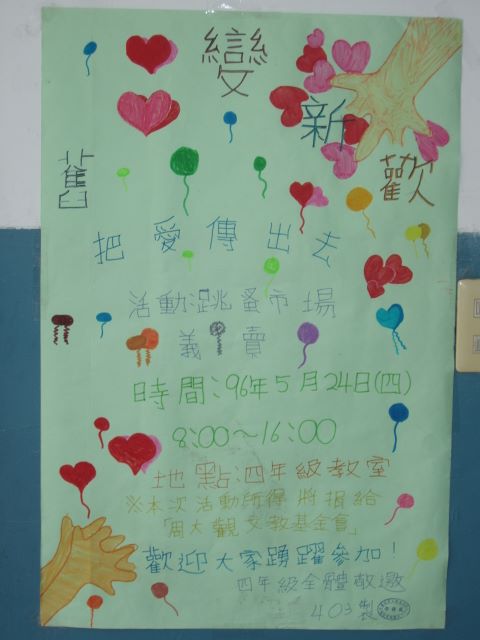 舊變新歡
把愛傳出去
活動跳蚤市場
義賣
時間：96年5月24日(四)
8:00～16:00
地點：四年級教室
※本次活動所得將捐給
「周大觀文教基金會」
歡迎大家踴躍參加！
四年級全體敬邀
403製